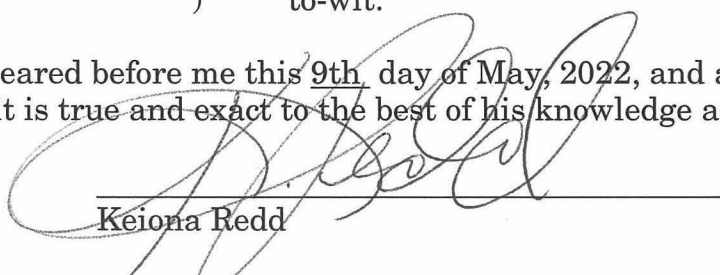 ) to-wit:
eared before me this 9th day of May, 2022, and a
t is true and exact to the best of his knowledge a
K. Redd
Keiona Redd